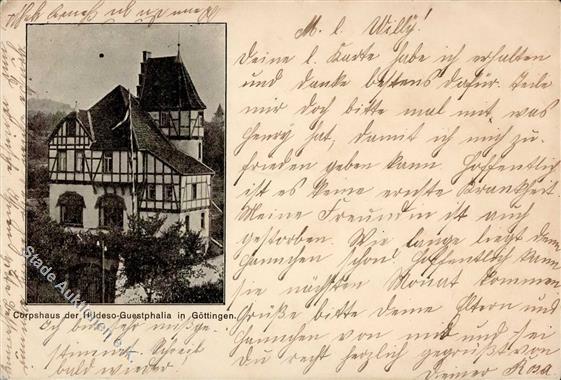 M. l. Willy!
Deine l. Karte habe ich erhalten
und danke bestens dafür. Teile
mir doch bitte mal mit was
Henry hat, damit ich mich zu-
frieden geben kann. Hoffentlich
ist es keine ernste Krankheit
Meine Freundin ist auch
gestorben. Wie lange liegt denn
Hannchen schon? Hoffentlich kann
sie nächsten Monat kommen
Grüße bitte deine Eltern und
Hannchen von mir und sei
Du recht herzlich gegrüßt von
Deiner Rosa
Corpshaus der Hildeso-Guestphalia in Göttingen.
Ich bin sehr mißge-
stimmt. Schreib
bald wieder.
Stade Auktionen e.K.